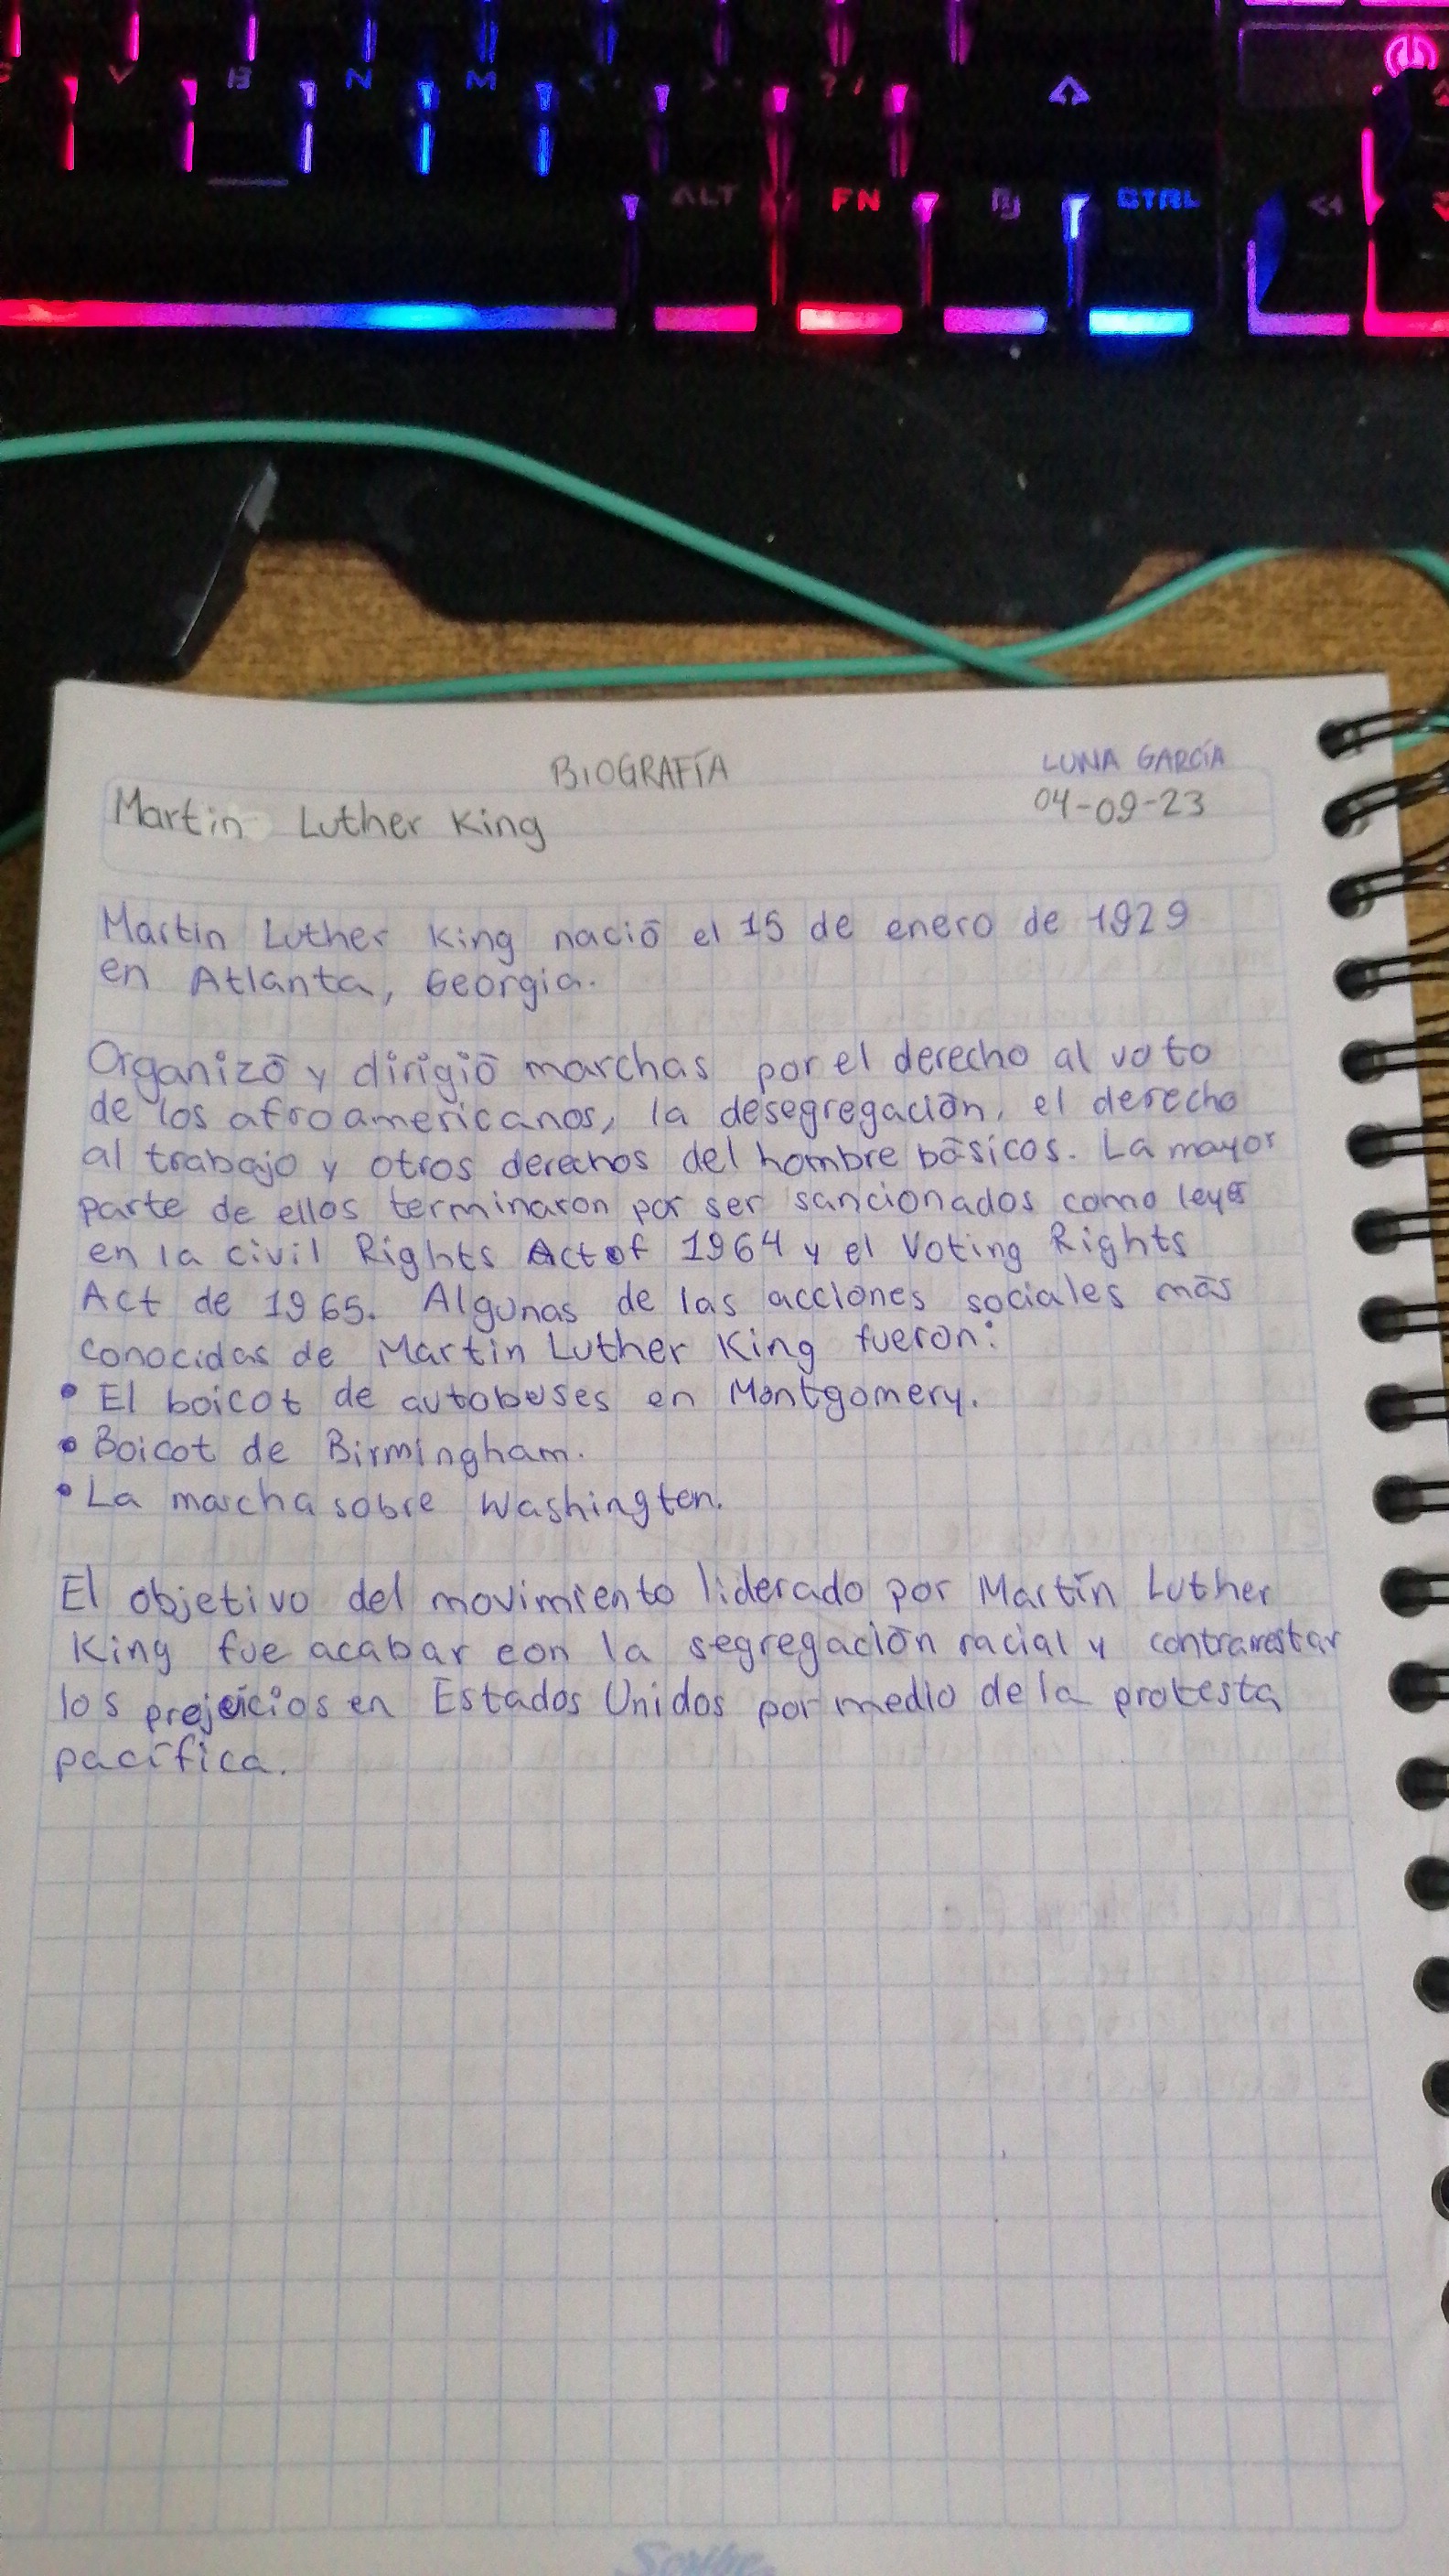 V B N M < > ? /
ALT FN CTRL
BIOGRAFÍA
LUNA GARCÍA
Martin Luther King
04-09-23
Martin Luther King nació el 15 de enero de 1929
en Atlanta, Georgia.
Organizó y dirigió marchas por el derecho al voto
de los afroamericanos, la desegregación, el derecho
al trabajo y otros derechos del hombre básicos. La mayor
parte de ellos terminaron por ser sancionados como leyes
en la civil Rights Act of 1964 y el Voting Rights
Act de 1965. Algunas de las acciones sociales más
conocidas de Martin Luther King fueron:
• El boicot de autobuses en Montgomery.
• Boicot de Birmingham.
• La marcha sobre Washington.
El objetivo del movimiento liderado por Martín Luther
King fue acabar con la segregación racial y contrarrestar
los prejuicios en Estados Unidos por medio de la protesta
pacífica.
Scribe